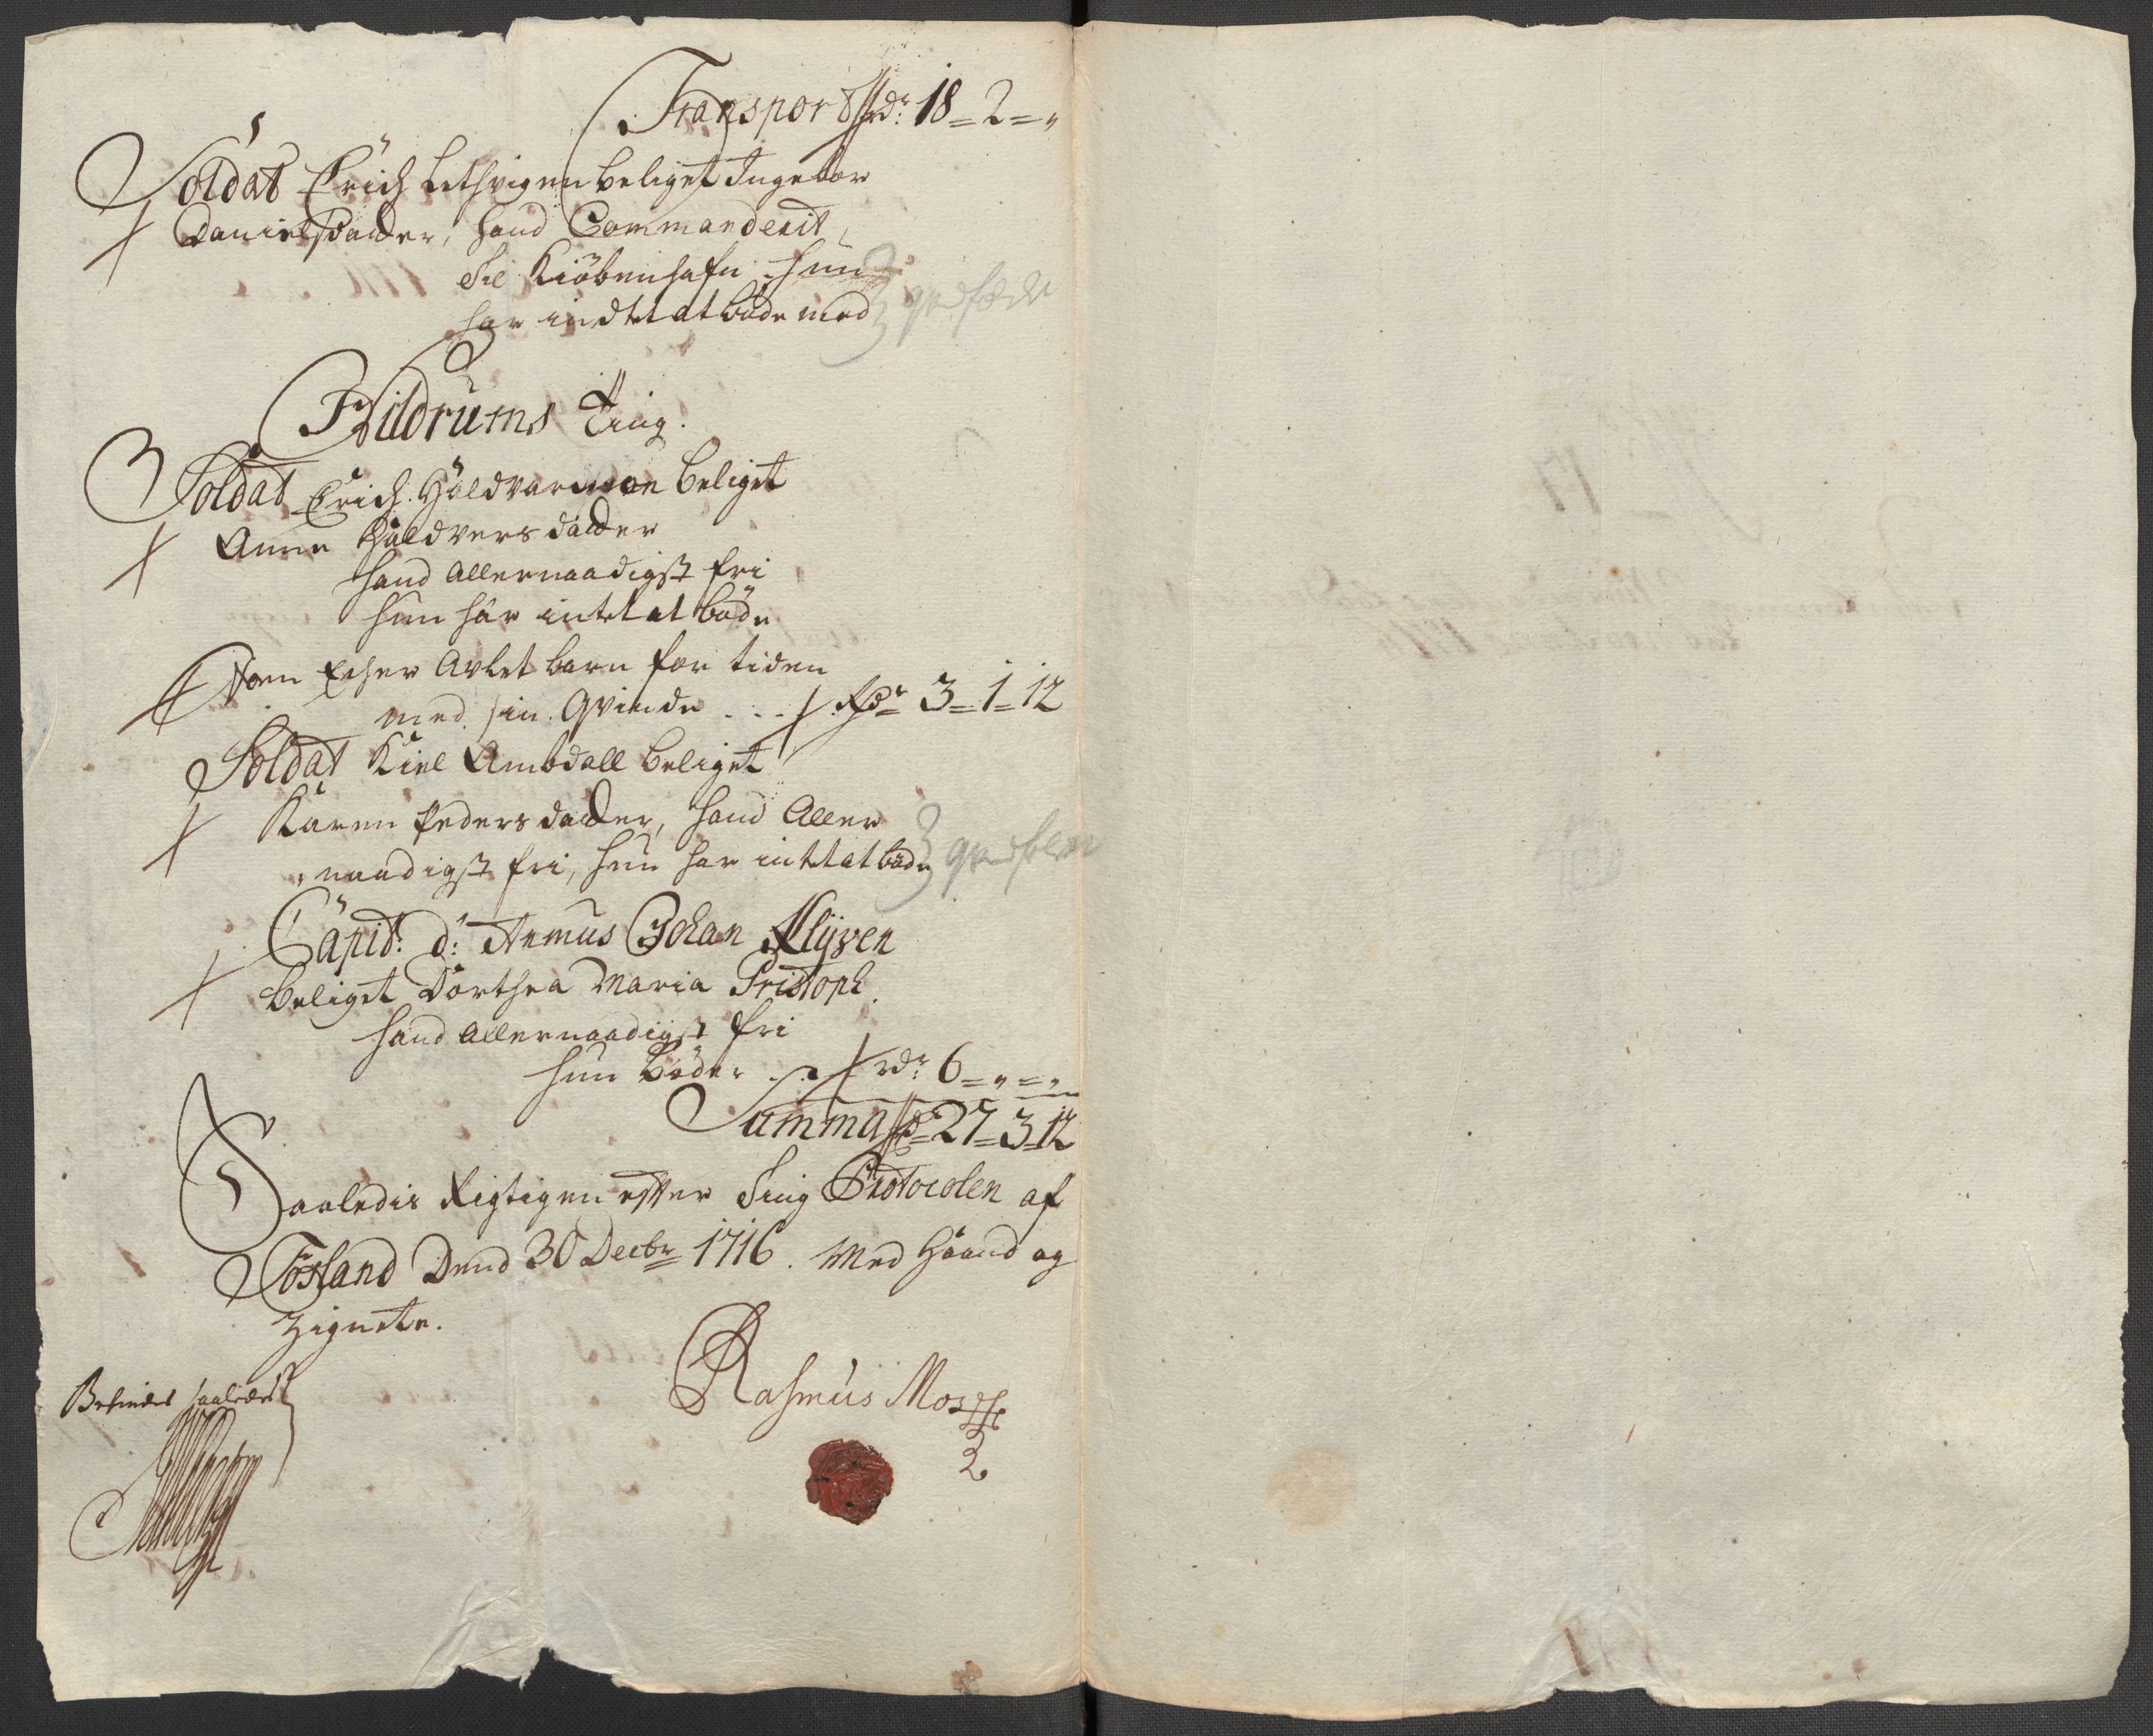 Transport Rdr 18 = 2 = "
Soldat Erich Lethvigen beliget Ingebor
Danielsdatter, hand Commanderit
til Kiöbenhafn, hun
har indtet at böde med
Fildrums Ting.
Soldat Erich Haldvarsøn beliget
Anne Haldversdatter
hand allernaadigst fri
hun har intet at böde
avlet barn for tiden
med sin Qvinde - - - Rdr 3 = 1 = 12
Soldat Kiel Ambdall beliget
Karen Pedersdatter, hand Aller
naadigst fri, hun har intet at böde
Capit: d: Johan
beliget Dorthea Maria Pristoph.
hand allernaadigst fri
hun böder - - rdr 6 = " = "
Summa Rdr 27 = 3 = 12
Saaledis Rigtigen efter Ting Protocolen af
Fosland Dend 30 Decbr 1716. Med Haand og
Zignete.
Rasmus
Befindes saaledes